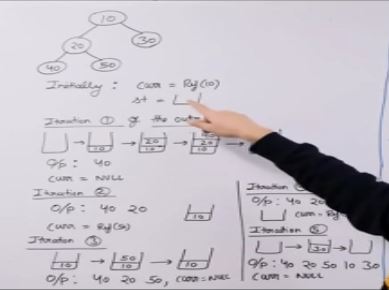 10
20 30
40 50
Initially : Curr = Ref(10)
st =
Iteration ① of the outer
10
20
10
20
10
O/p : 40
Curr = NULL
Iteration ②
O/p : 40 20
10
Curr = Ref(50)
Iteration ③
10
50
10
10
O/p : 40 20 50, Curr=NULL
Iteration
O/p : 40 20
10
Iteration ⑤
30
O/p : 40 20 50 10 30
Curr = NULL